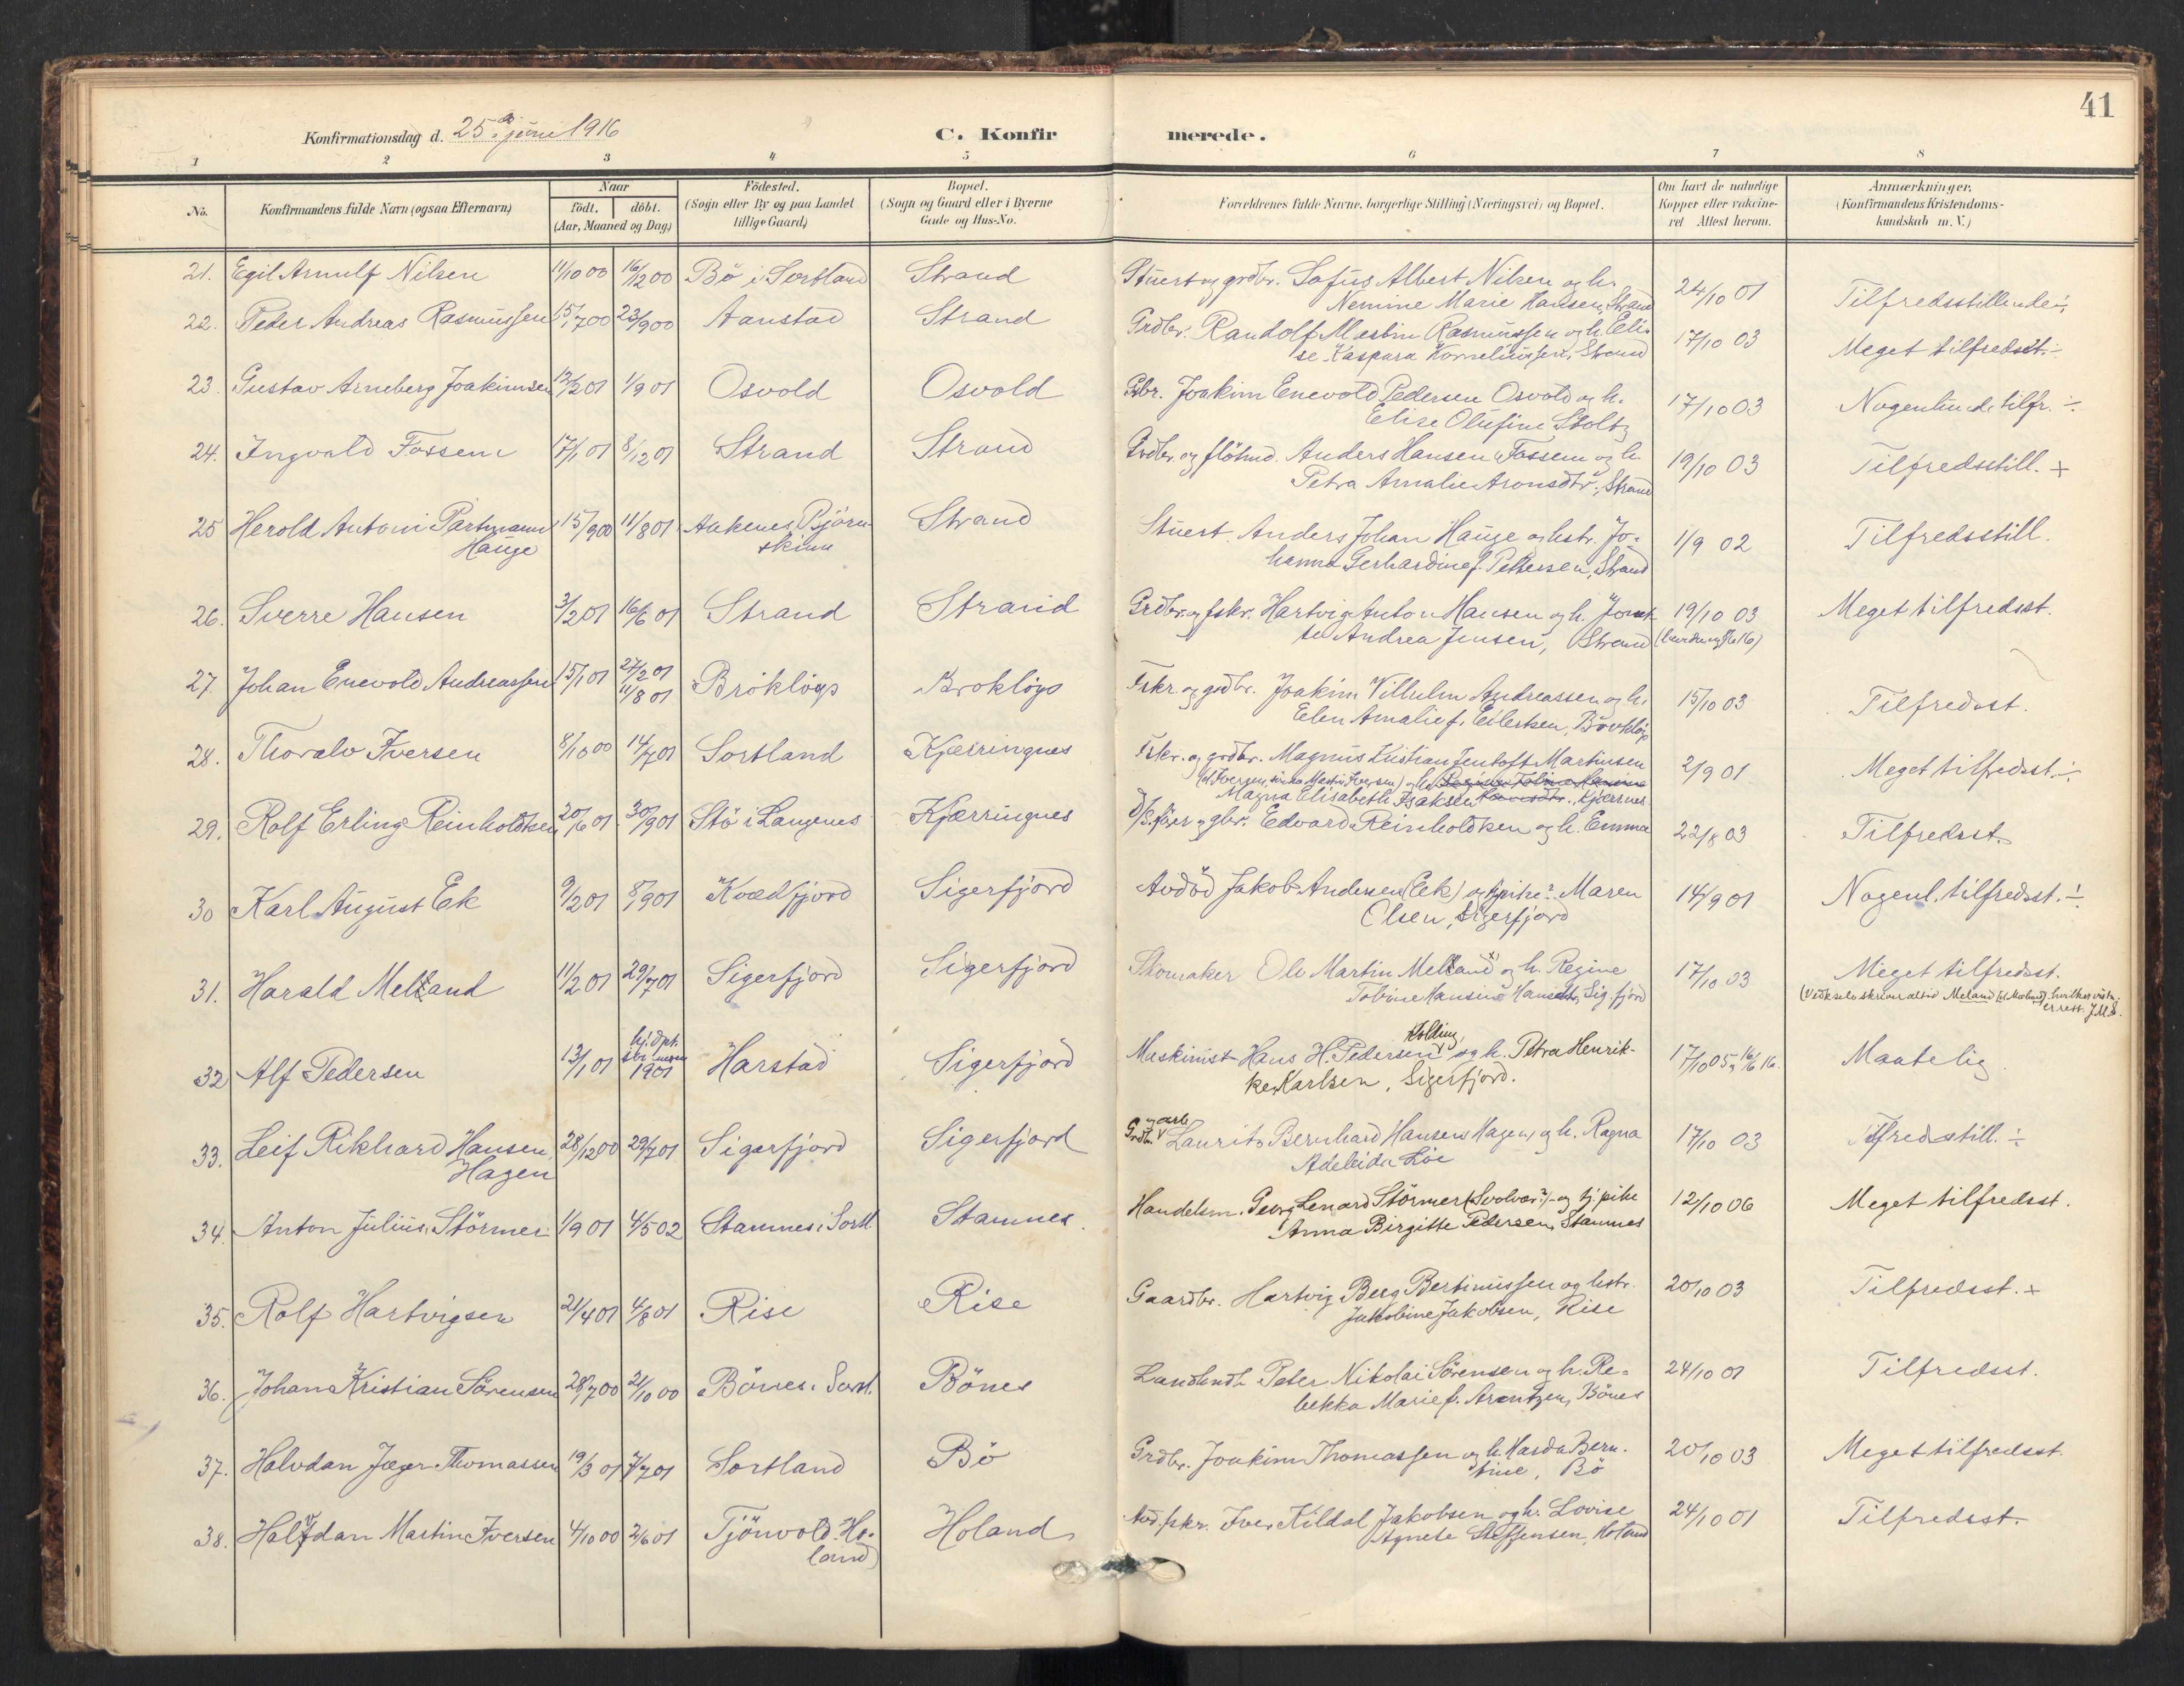 41
Konfirmationsdag d. 25de juni 1916
C. Konfir merede.
1 2 3 4 5 6 7 8
No.
Konfirmandens fulde Navn (ogsaa Efternavn)
Naar
födt. döbt.
(Aar, Maaned og Dag)
Födested.
(Sogn eller By og paa Landet
tillige Gaard)
Bopæl.
(Sogn og Gaard eller i Byerne
Gade og Hus-No.
Forældrenes fulde Navne, borgerlige Stilling (Næringsvei) og Bopæl.
Om havt de naturlige
Kopper eller vakcine-
ret Attest herom.
Anmærkninger.
(Konfirmandens Kristendoms-
kundskab m. V.)
21. Egil Arnulf Nilsen 11/10 00 16/12 00 Bö i Sortland Strand Stuert og grdbr. Sofus Albert Nilsen og h. 24/10 01 Tilfredsstillende ÷
Nemine Marie Hansen, Strand
22. Peder Andreas Rasmussen 15/7 00 23/9 00 Aanstad Strand Grdbr. Randolf Martin Rasmussen og h. Eli- 17/10 03 Meget tilfredsst. ÷
se Kaspara Korneliussen, Strand
23. Gustav Arneberg Joakimsen 12/2 01 1/9 01 Osvold Osvold Gbr. Joakim Enevold Pedersen Osvold og h. 17/10 03 Nogenlunde tilfr. ÷
Elise Olufine Stoltz
24. Ingvald Fossem 17/1 01 8/12 01 Strand Strand Grdbr. og flötmd. Anders Hansen Fossem og h. 19/10 03 Tilfredsstill. +
Petra Amalie Aronsdtr., Strand
25 Herold Antoni Partmann 15/9 00 11/8 01 Aakenes, Bjørn- Strand Stuert Anders Johan Hauge og hstr. Jo- 1/9 02 Tilfredsstill.
Hauge skinn hanna Gerhardine f. Pettersen, Strand
26. Sverre Hansen 3/2 01 16/6 01 Strand Strand Grdbr. og fskr. Hartvig Anton Hansen og h. 19/10 03 Meget tilfredsst.
Andrea Jensen, Strand
27. Johan Enevold Andreassen 15/1 01 27/2 01 Bröklöys Brokløys Fskr. og grdbr. Joakim Vilhelm Andreassen og h. 15/10 03 Tilfredsst.
11/8 01 Elen Amalie f. Eilertsen,
28. Thoralv Iversen 8/10 00 14/7 01 Sortland Kjærringnes Fskr. og grdbr. Magnus Kristian Jentoft Martinsen 2/9 01 Meget tilfredsst. ÷
Magna Elisabeth Isaksen
29. Rolf Erling Reinholdtsen 20/6 01 30/9 01 Stö i Langenes Kjærringnes og gbr. Edvard Reinholdtsen og h. Emma 22/8 03 Tilfredsst.
30 Karl August Ek 9/2 01 8/9 01 Kvædfjord Sigerfjord Avdöd Jakob Andersen (Ek) og pike Maren 14/9 01 Nogenl. tilfredsst. ÷
Olsen, Sigerfjord
31. Harald Melland 11/2 01 29/7 01 Sigerfjord Sigerfjord Skomaker Ole Martin Melland og h. Regine 17/10 03 Meget tilfredsst.
Tobine Hansine Hansdtr, Sig.fjord
32 Alf Pedersen 13/1 01 hj.dpt. 1901 Harstad Sigerfjord Maskinist Hans H. Pedersen Kolding og h. Petra Henrik- 17/10 05, 16/6 16. Maatelig
ke Karlsen, Sigerfjord.
33. Leif Rikhard Hansen 28/12 00 29/7 01 Sigerfjord Sigerfjord Grdbr. og arb. Laurits Bernhard Hansen Hagen og h. Ragna 17/10 03 Tilfredsstill. ÷
Hagen Adeleida Löe
34. Anton Julius Störmer 1/9 01 4/5 02 Stamnes i Sortl. Stamnes. Handelsm. Georg Lenard Störmer (Svolvær?) og tj. pike 12/10 06 Meget tilfredsst.
Anna Birgitte Pedersen, Stamnes
35. Rolf Hartvigsen 21/4 01 4/8 01 Rise Rise Gaardbr. Hartvig Berg Bertinussen og hstr. 20/10 03 Tilfredsst. +
Jakobine Jakobsen, Rise
36. Johan Kristian Sörensen 28/7 00 21/10 00 Bönes i Sortl. Bönes Landhndl. Peter Nikolai Sörensen og h. Re- 24/10 01 Tilfredsst.
bekka Marie f. Arentzen, Bönes
37. Halvdan Jæger Thomassen 19/3 01 7/7 01 Sortland Bö Grdbr. Joakim Thomassen og h. Harda Bern- 20/10 03 Meget tilfredsst.
tine, Bö
38. Halfdan Martin Iversen 4/10 00 2/6 01 Tjönvold. Ho- Holand Avd. fskr. Iver Kildal Jakobsen og h. Lovise 24/10 01 Tilfredsst.
land) Agnete Steffensen, Holand